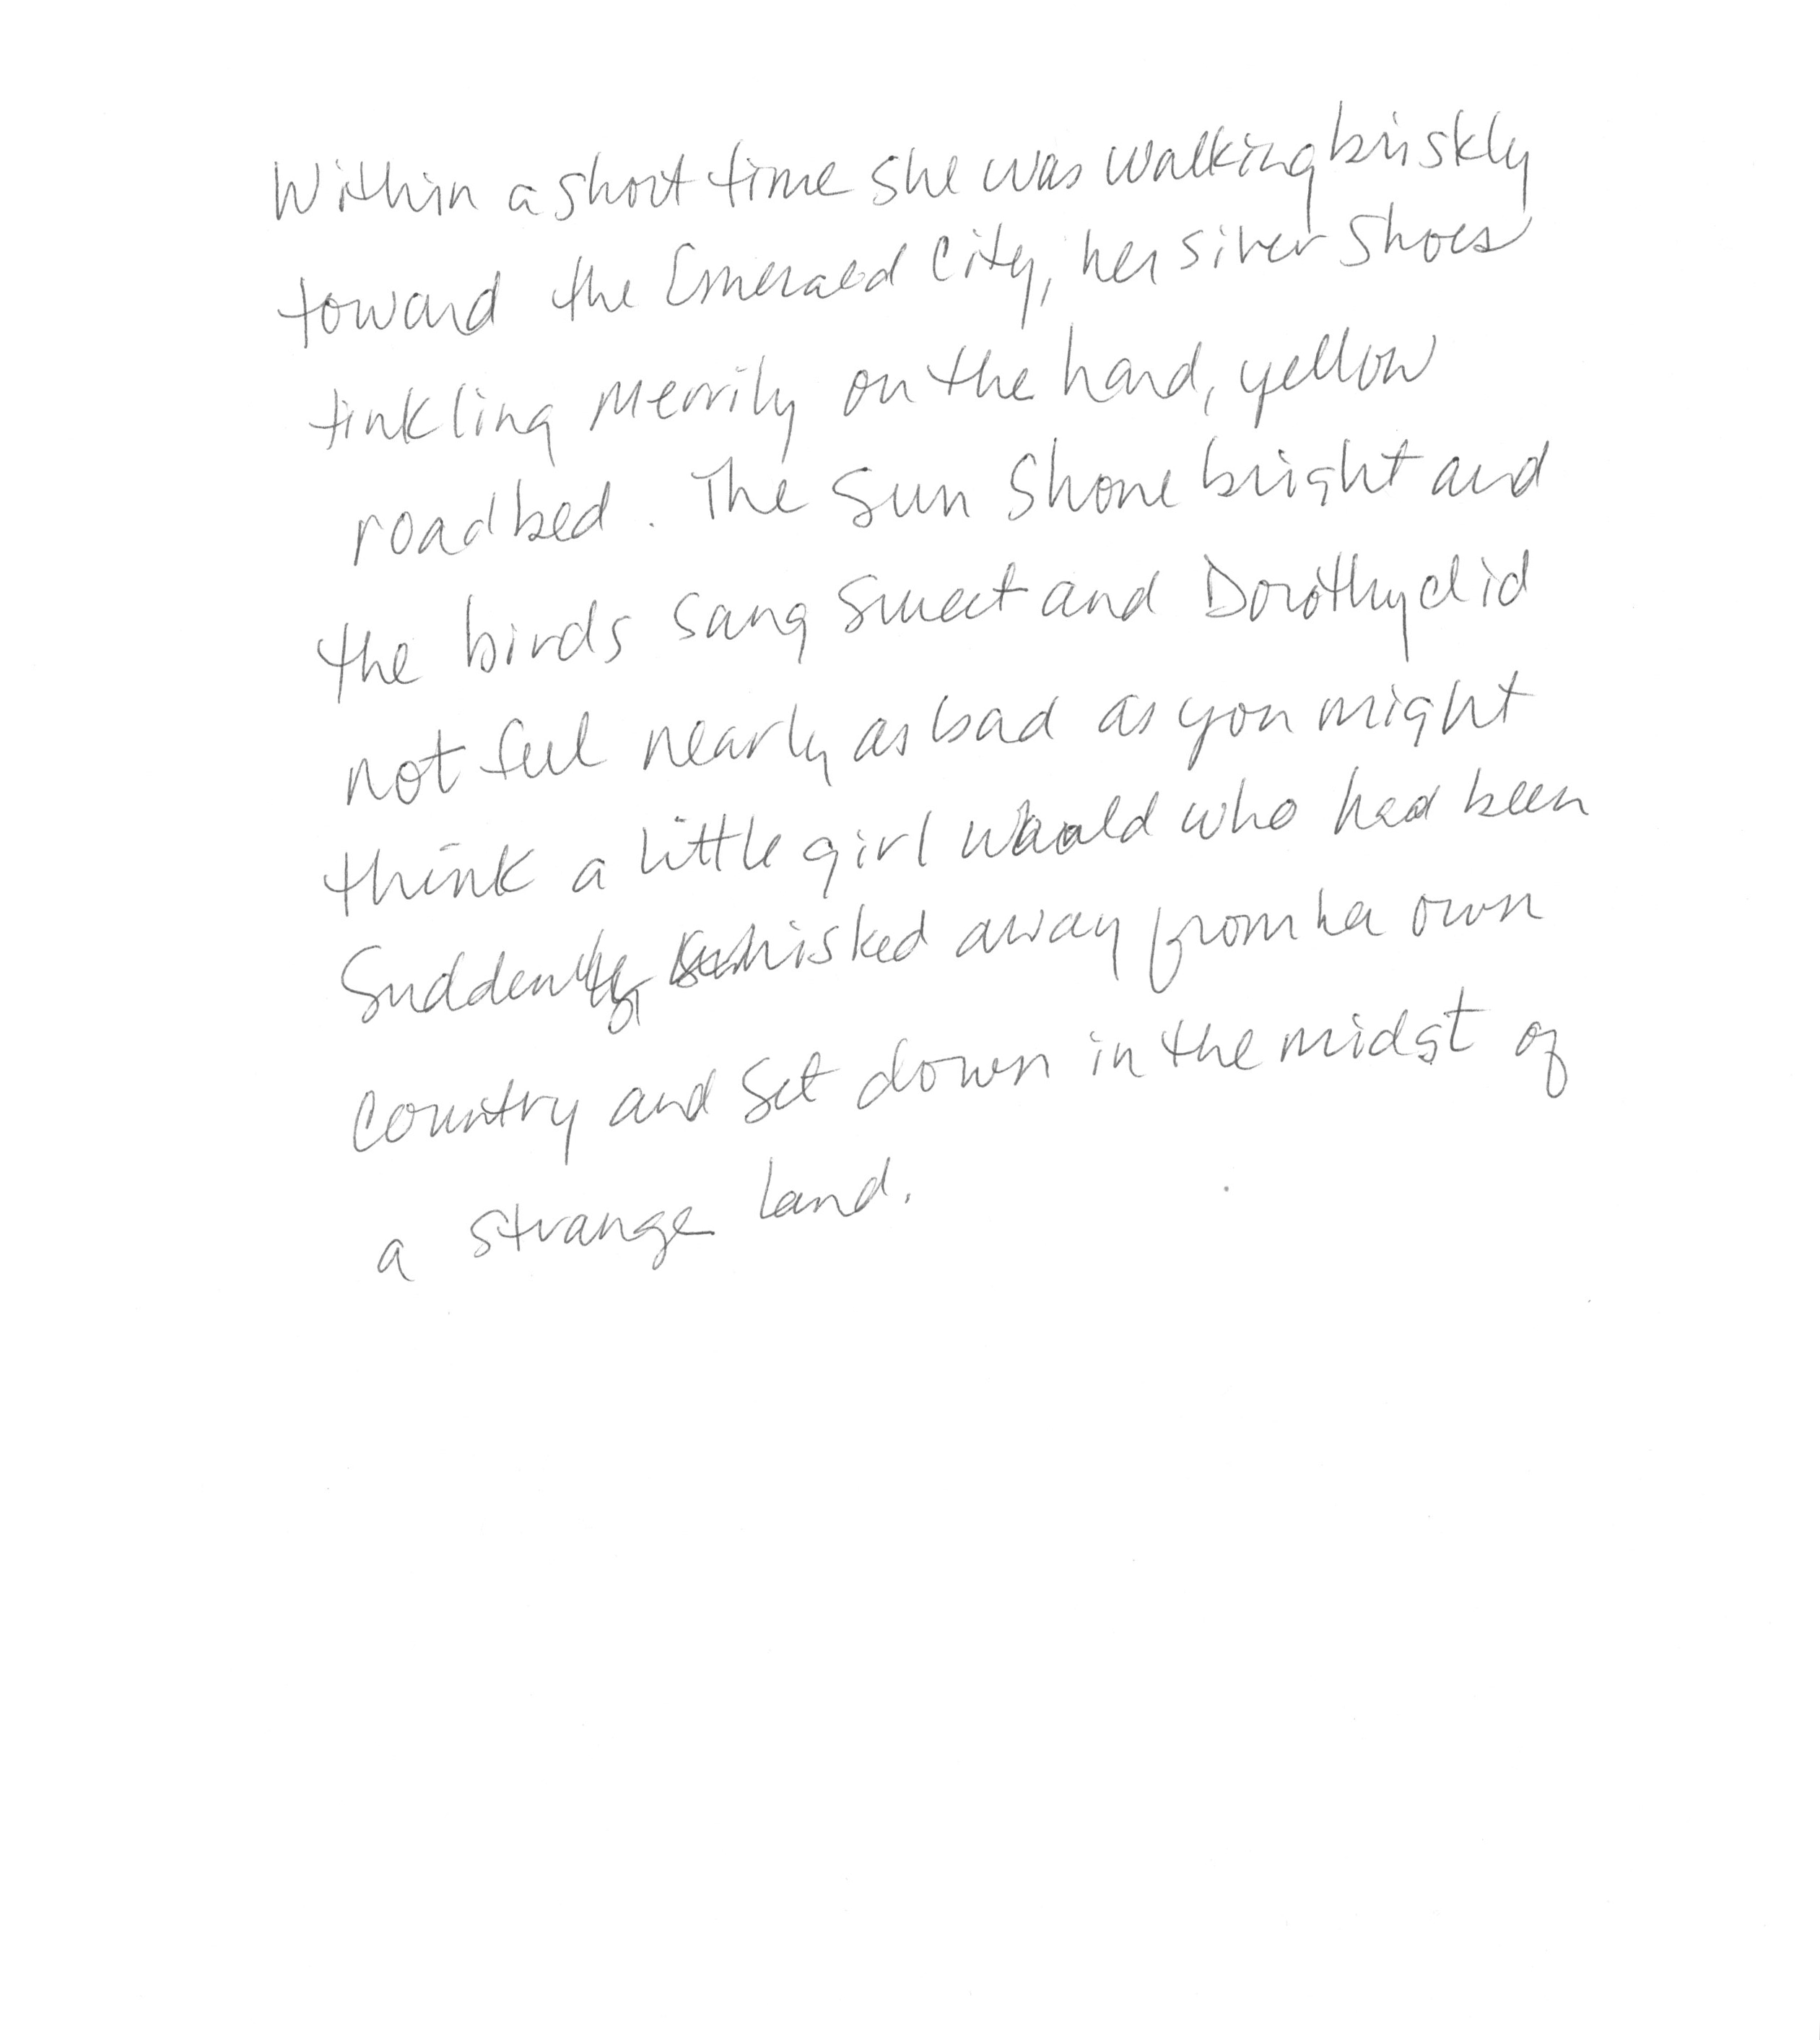 Within a short time she was walking briskly
toward the Emerald City, her siver shoes
tinkling merrily on the hard, yellow
roadbed. The sun shone bright and
the birds sang sweet and Dorothy did
not feel nearly as bad as you might
think a little girl would who had been
suddenly whisked away from her own
country and set down in the midst of
a strange land.